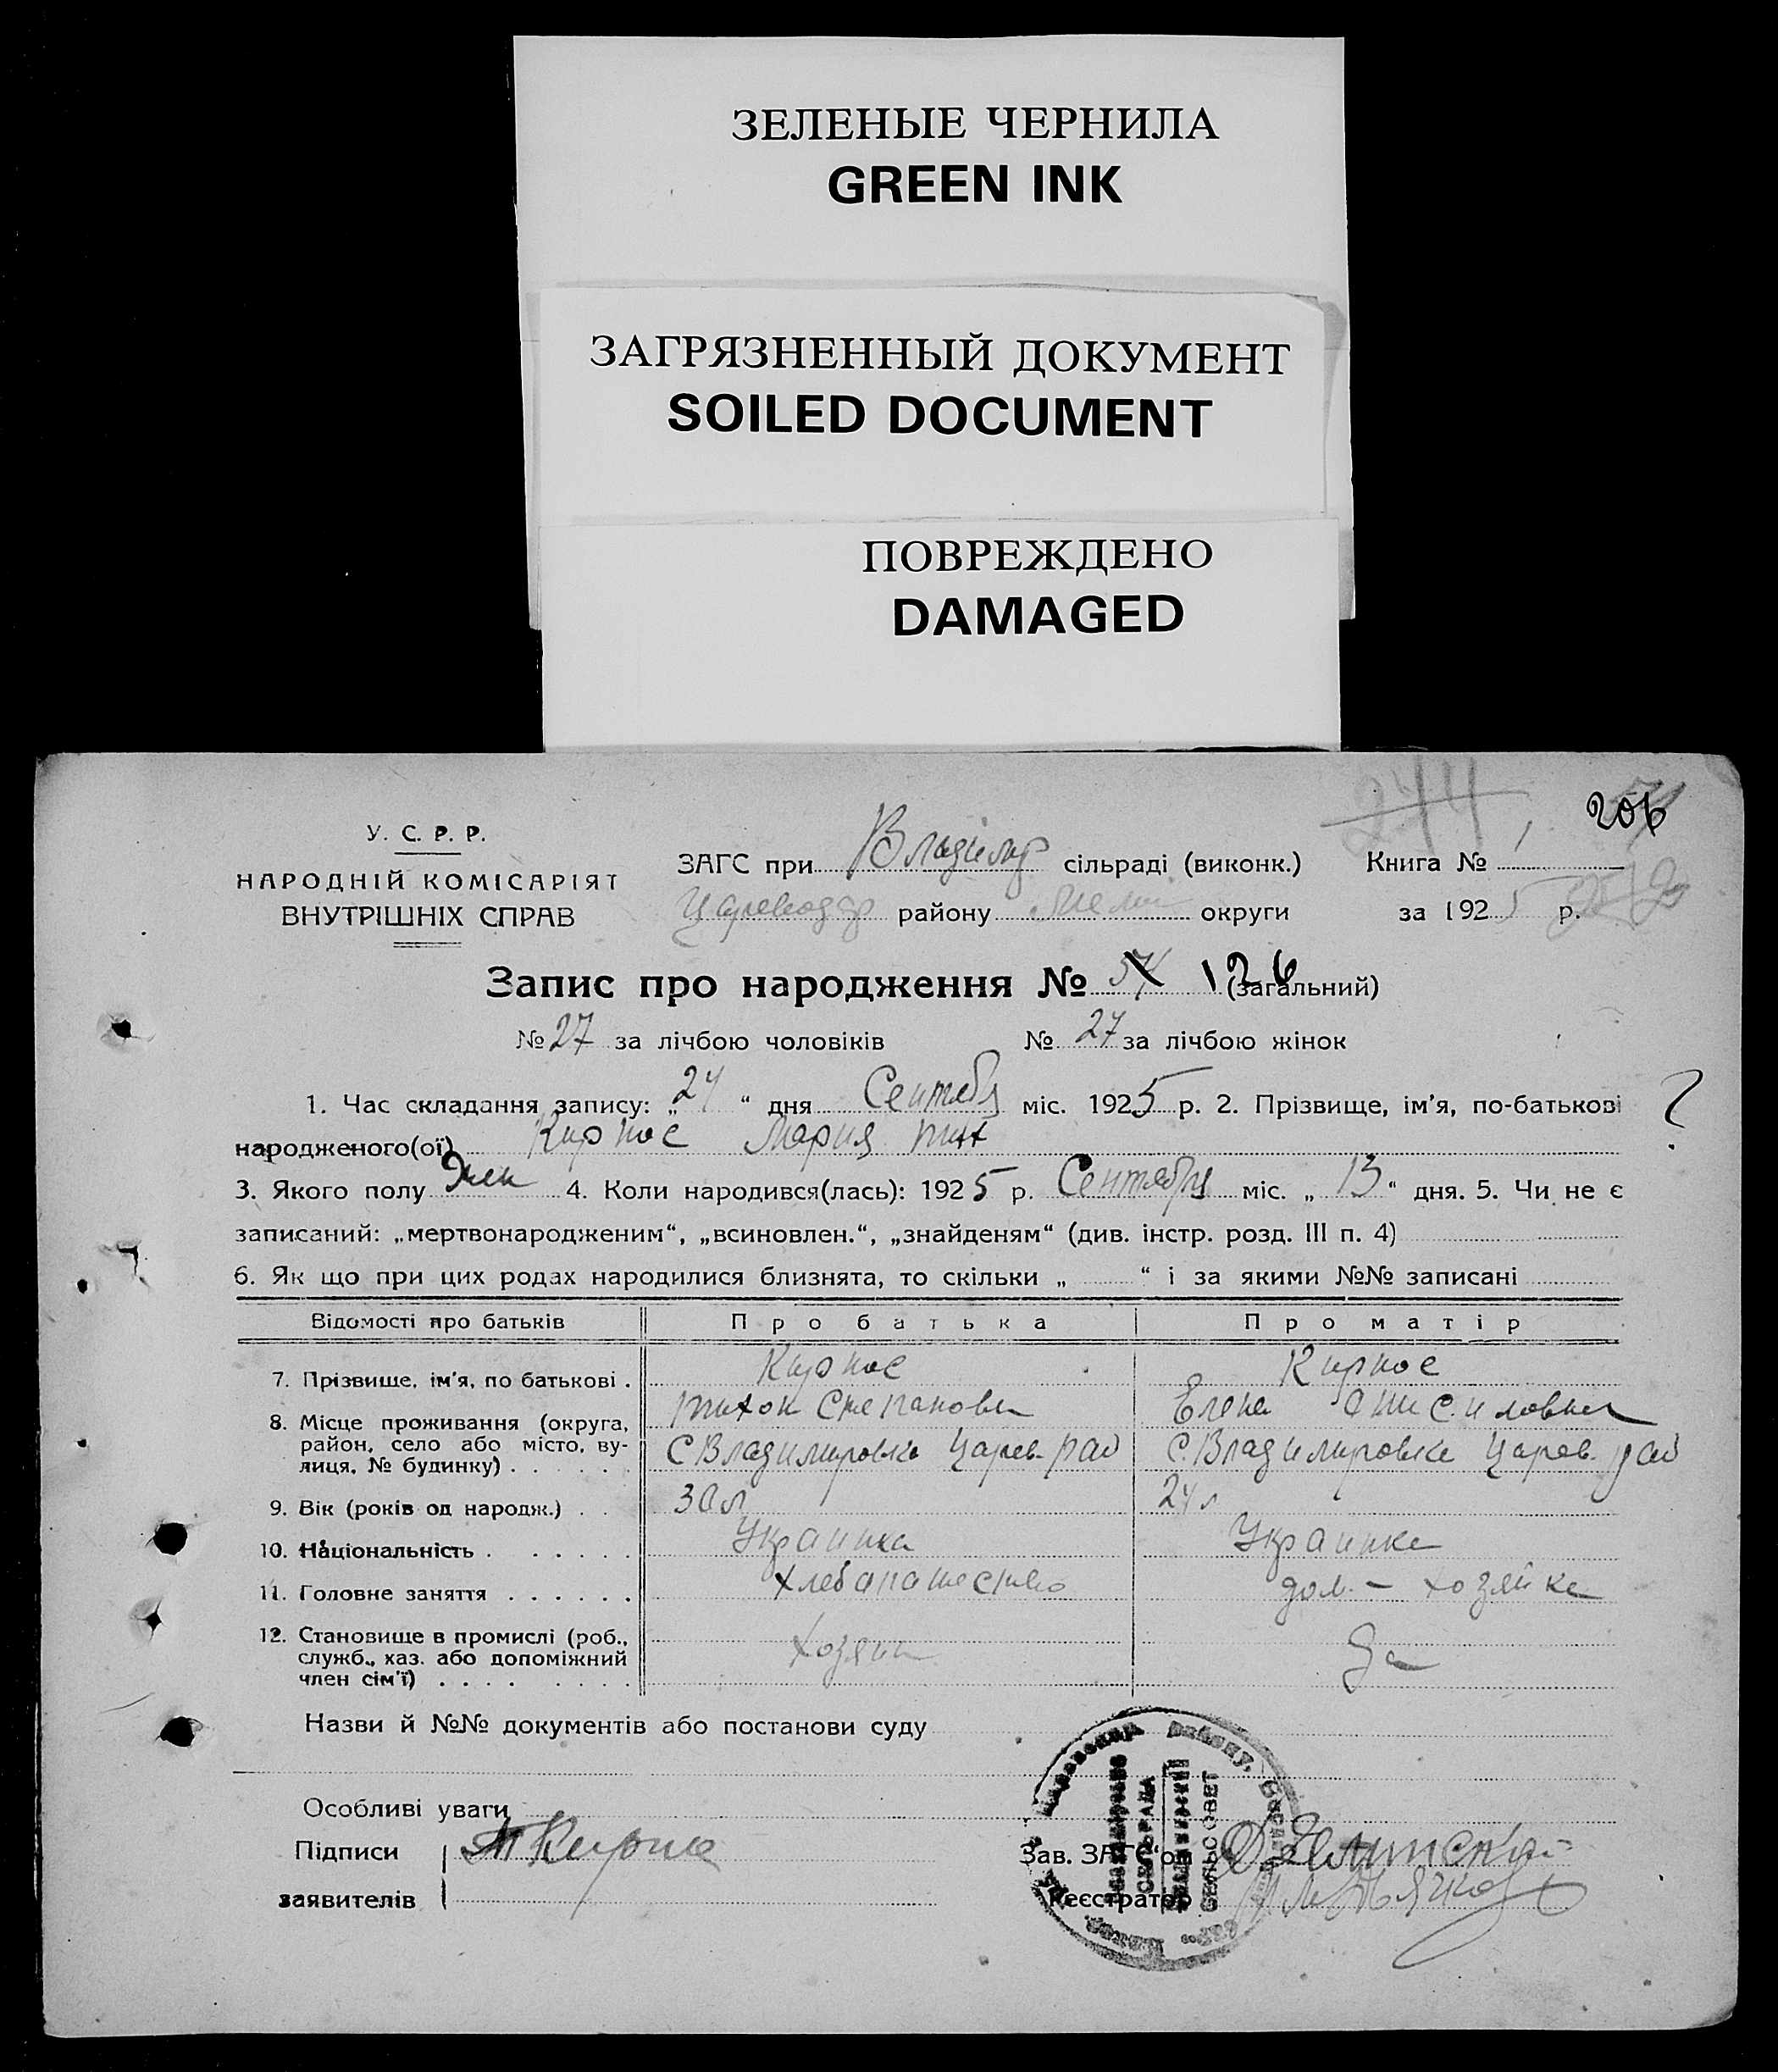 ЗЕЛЕНЫЕ ЧЕРНИЛА
GREEN INK
ЗАГРЯЗНЕННЫЙ ДОКУМЕНТ
SOILED DOCUMENT
ПОВРЕЖДЕНО
DAMAGED
244
206
У. С. Р. Р.
НАРОДНІЙ КОМІСАРІЯТ
ВНУТРІШНІХ СПРАВ
ЗАГС при Владимир сільраді (виконк.) Книга №
району округи за 1925 р.
Запис про народження № 54 126 (загальний)
№ 27 за лічбою чоловіків № 27 за лічбою жінок
1. Час складання запису: „24“ дня Сентября міс. 1925 р. 2. Прізвище, ім'я, по-батькові ?
народженого(ої) Кирнос Мария Тих
3. Якого полу Жен 4. Коли народився(лась): 1925 р. Сентября міс. „13“ дня. 5. Чи не є
записаний: „мертвонародженим“, „всиновлен.“, „знайденям“ (див. інстр. розд. III п. 4)
6. Як що при цих родах народилися близнята, то скільки „ “ і за якими №№ записані
Відомості про батьків Про батька Про матір
7. Прізвище, ім'я, по батькові . Кирнос Кирнос
Тихон Степанови Елена Анисимовна
8. Місце проживання (округа, район, село або місто, вулиця, № будинку) . С Владимировка Царев. рай С. Владимировка Царев. рай
9. Вік (років од народж.) . . 30 л 24 л
10. Національність . Украинка Украинка
11. Головне заняття . Хлебапашество дом. - хозяйка
12. Становище в промислі (роб., служб., хаз. або допоміжний член сім'ї) . Хозяин
Назви й №№ документів або постанови суду
Особливі уваги
Підписи Т Кирно
заявителів
Зав. ЗАГС'ом
Реєстратор
району,
СІЛЬРАДА
СЕЛЬСОВЕТ